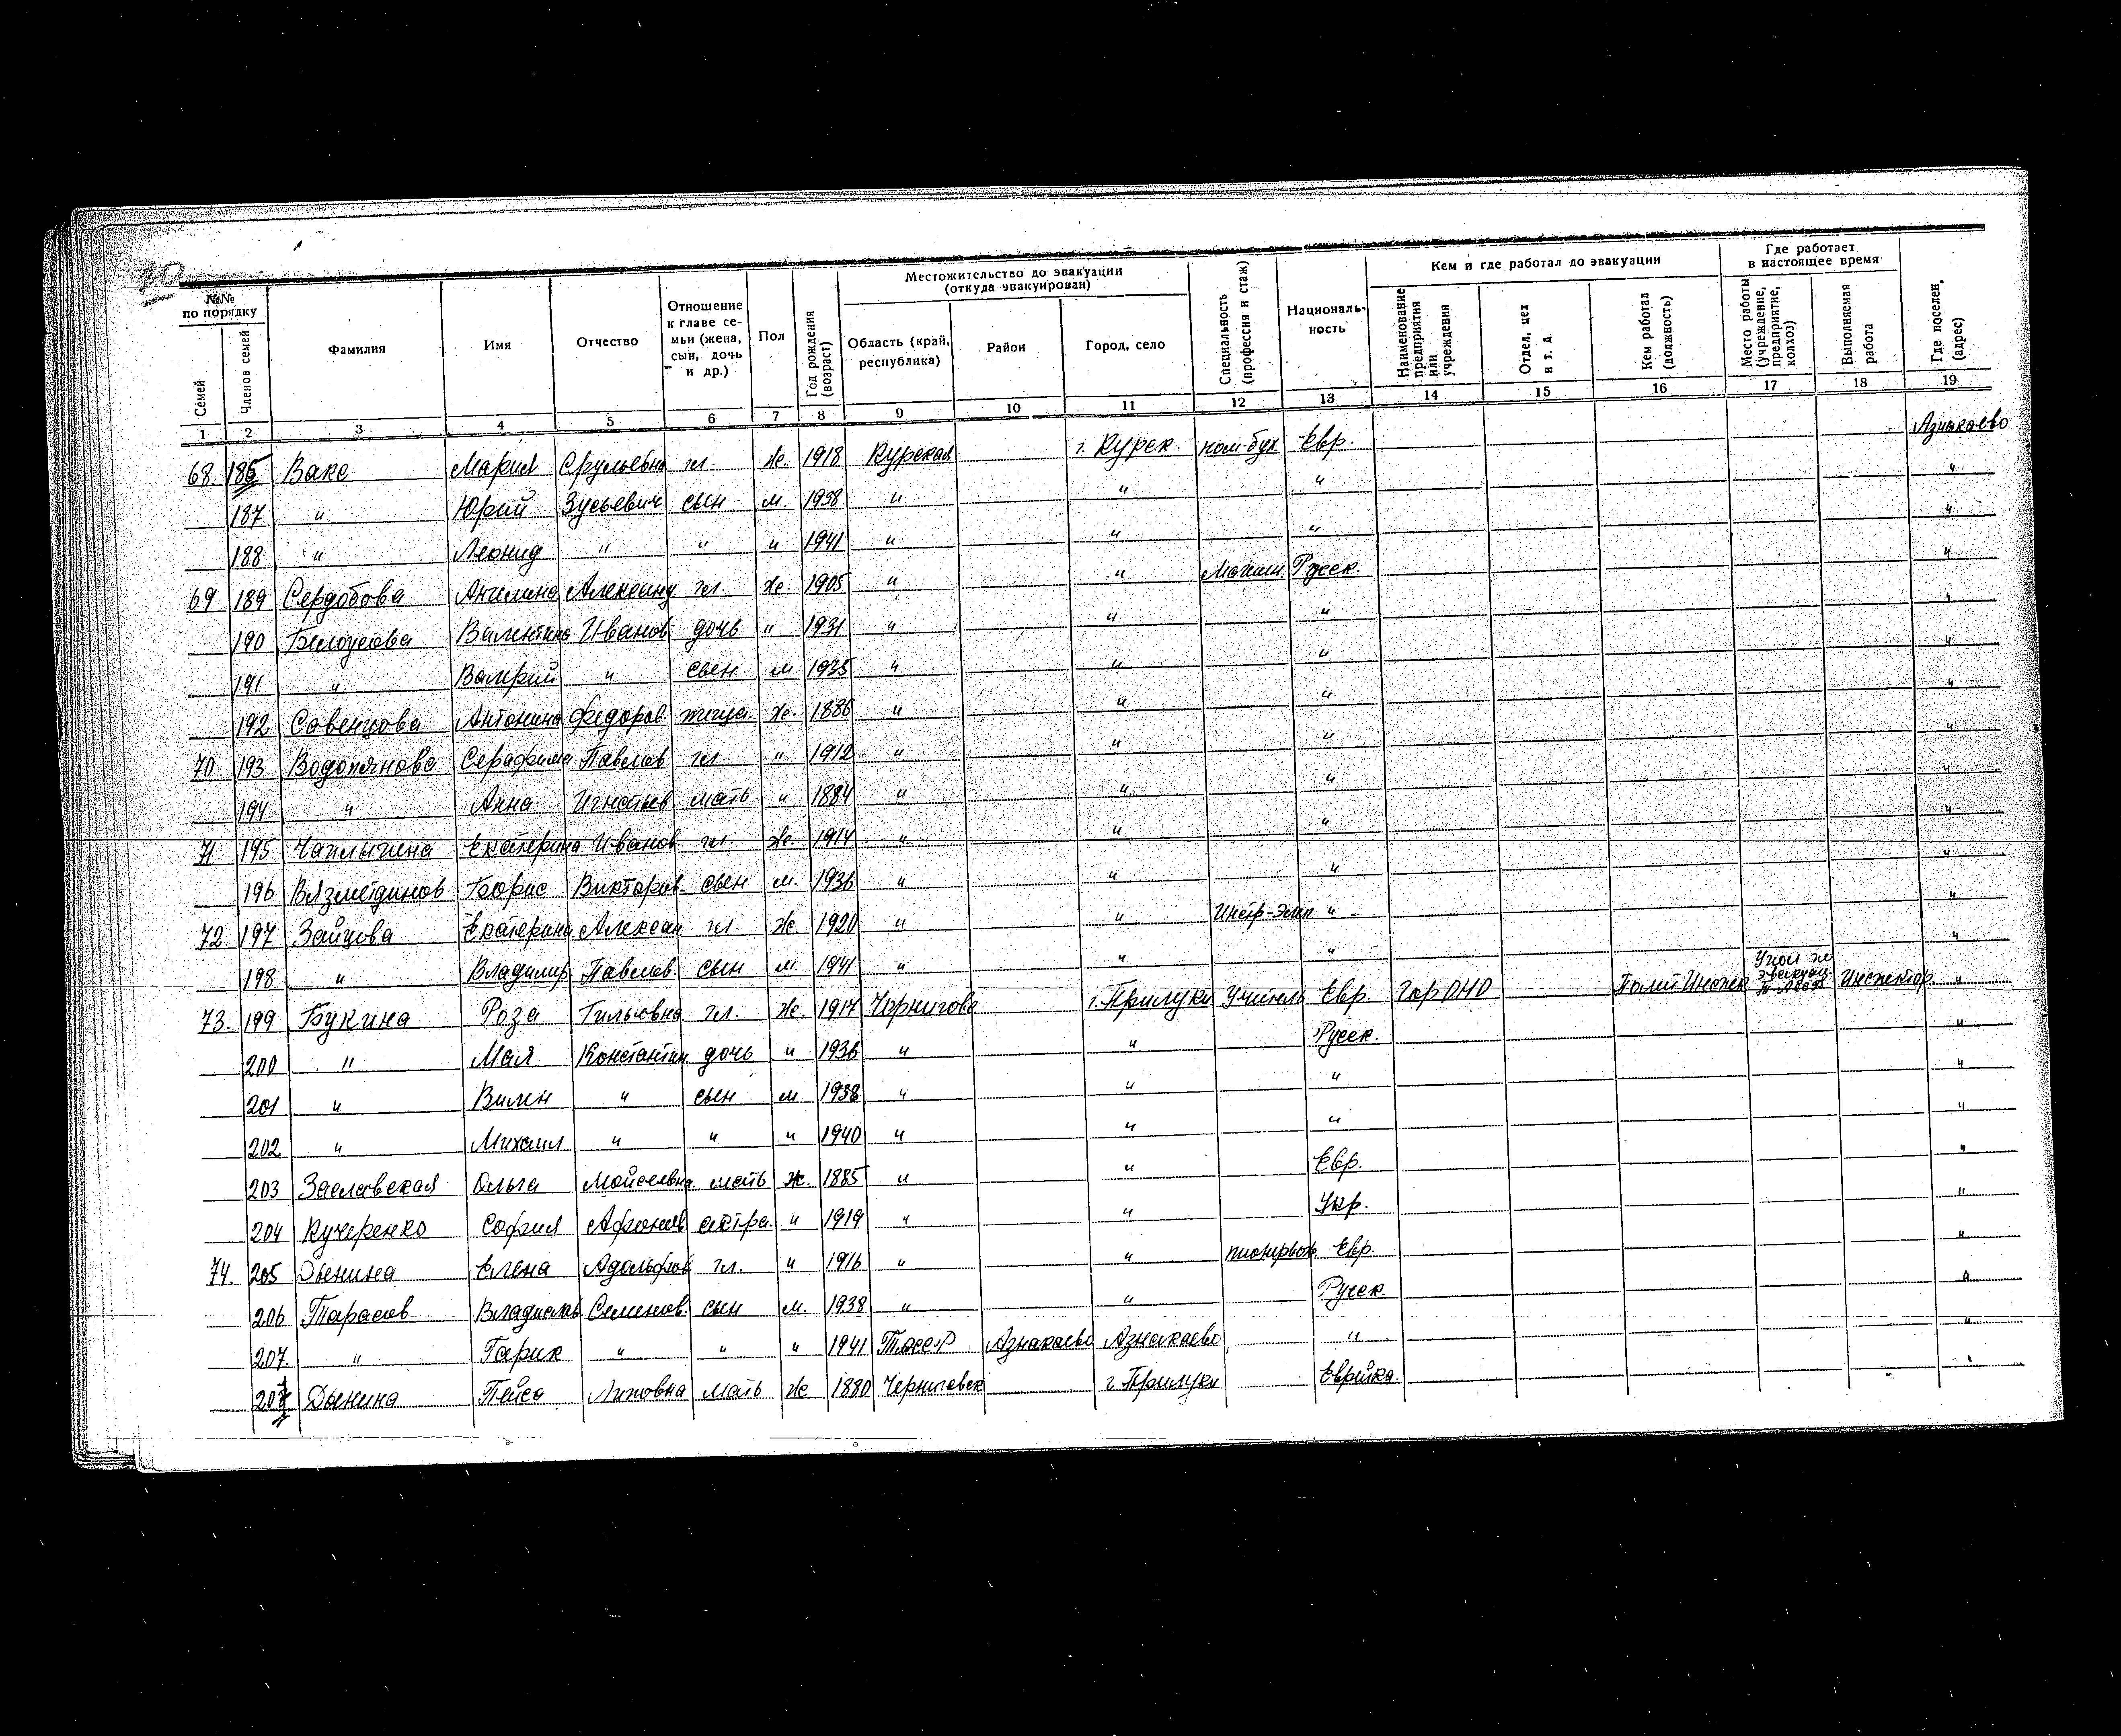 20
№№ по порядку
Семей
Членов семей
Фамилия
Имя
Отчество
Отношение к главе се-мьи (жена, сын, дочь и др.)
Пол
Год рождения (возраст)
Местожительство до эвакуации (откуда эвакуирован)
Область (край, республика)
Район
Город, село
Специальность (профессия и стаж)
Националь-ность
Кем и где работал до эвакуации
Наименование предприятия или учреждения
Отдел, цех и т. д.
Кем работал (должность)
Где работает в настоящее время
Место работы (учреждение, предприятие, колхоз)
Выполняемая работа
Где поселен (адрес)
1 2 3 4 5 6 7 8 9 10 11 12 13 14 15 16 17 18 19
68. 186 Вакс Мария Срульевна гл. Же. 1918 Курская г. Курск. Евр. Азнакаево
187 " Юрий Зусьевич сын м. 1938 " " " "
188 " Леонид " " " 1941 " " " "
69 189 Сердобова Ангелина Александ гл. Же. 1905 " " Машин. Русск. "
190 Белоусова Валентина Иванов дочь " 1931 " " " "
191 " Валерий " сын м 1935 " " " "
192 Савенцова Антонина Федоров. Же. 1886 " " " "
70 193 Водопянова Серафима Павлов гл. " 1912 " " " "
194 " Анна Игнатьев мать " 1884 " " " "
71 195 Чаплыгина Екатерина Иванов гл. Же. 1914 " " " "
196 Вязметдинов Борис Виктор. сын м. 1936 " " " "
72 197 Зайцова Екатерина Алексан гл. Же. 1920 " " " "
198 " Владимир Павлов. сын м. 1941 " " " "
73. 199 Букина Роза Гильевна гл. Же. 1917 Чернигов г. Прилуки Учитель Евр. ГорОНО Полит Инспек Инспектор. "
200 " Мая Константин. дочь " 1936 " " Русск. "
201 " Вилен " сын м 1938 " " " "
202 " Михаил " " " 1940 " " " "
203 Заславская Ольга Мойсеевна мать Ж. 1885 " " Евр. "
204 Кучеренко София Афонов сестра. " 1919 " " Укр. "
74. 205 Дынина Елена Адольфов гл. " 1916 " " пионервож. Евр. "
206 Тарасов Владислав Семенов. сын м. 1938 " " Русск. "
207. " Гарик " " " 1941 ТАССР Азнакаево Азнакаево " "
Дынина Пейса Липовна мать Ж 1880 Черниговск г. Прилуки Еврейка "